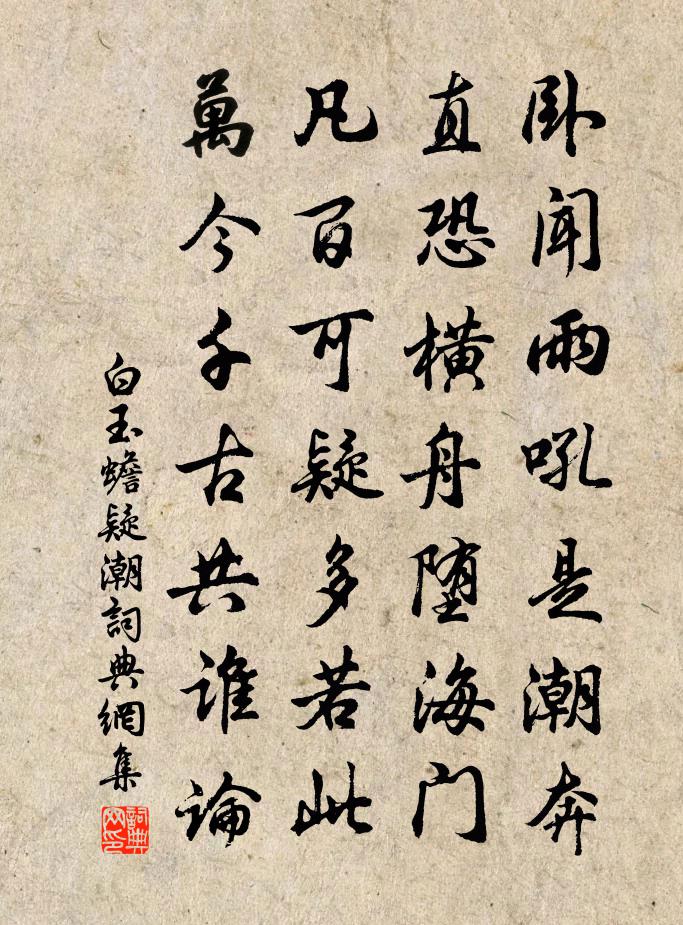 卧闻雨吼是潮奔
直恐横舟堕海门
凡百可疑多若此
萬今千古共谁論
白玉蟾疑潮詞典網集
詞典網印